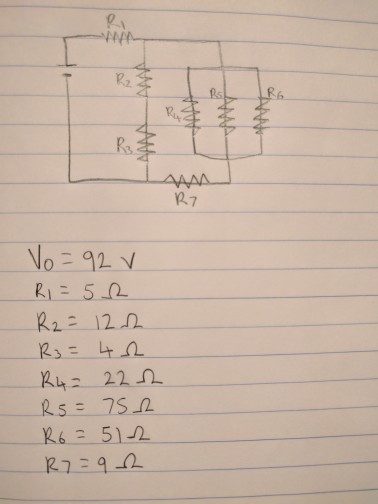 R1
R2
R4
R5
R6
R3
R7
V0 = 92 V
R1 = 5 Ω
R2 = 12 Ω
R3 = 4 Ω
R4 = 22 Ω
R5 = 75 Ω
R6 = 51 Ω
R7 = 9 Ω